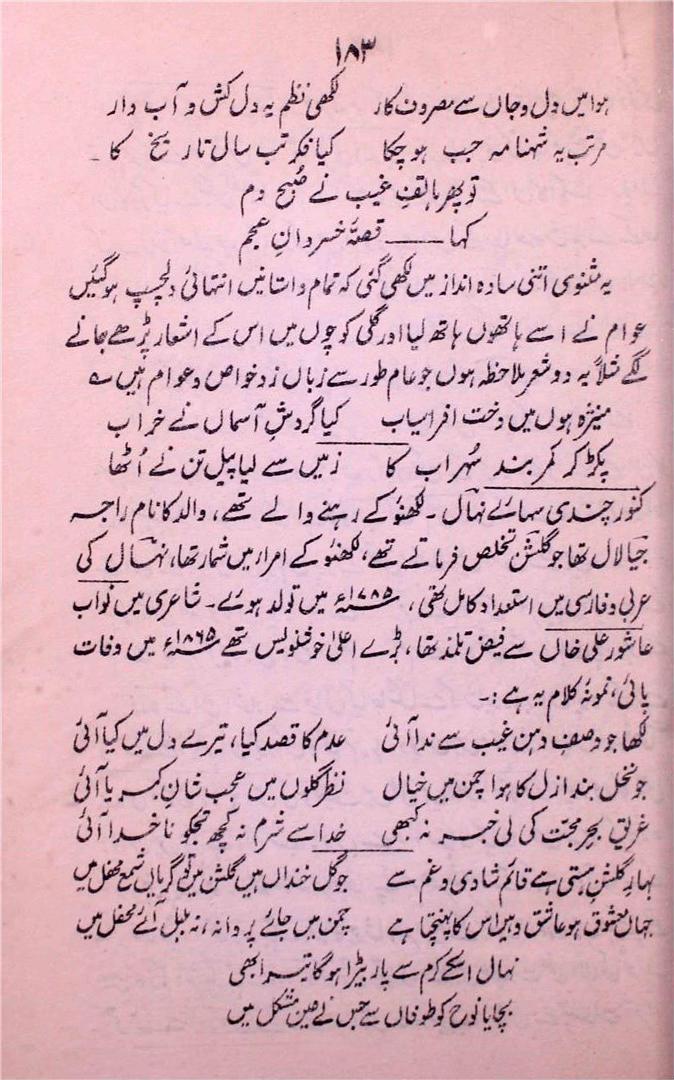 ۱۸۳
ہوا میں دل و جاں سے مصروف کار لکھی نظم یہ دل کش و آب دار
مرتب یہ شہنامہ جب ہو چکا کیا فکر تب سال تاریخ کا ۔
تو پھر ہاتفِ غیب نے صُبح دم
کہا ـــــ قصۂ خسردانِ عجم
یہ مثنوی اتنی سادہ انداز میں لکھی گئی کہ تمام داستانیں انتہائی دلچسپ ہو گئیں
عوام نے اسے ہاتھوں ہاتھ لیا اور گلی کوچوں میں اس کے اشعار پڑھے جانے
لگے مثلاً یہ دو شعر ملاحظہ ہوں جو عام طور سے زبان زد خواص و عوام ہیں ؎
منیژہ ہوں میں دخت افراسیاب کیا گردشِ آسماں نے خراب
پکڑ کر کمر بند سُہراب کا زمیں سے لیا پیل تن نے اُٹھا
کنور چندی سہائے نہال ۔ لکھنؤ کے رہنے والے تھے، والد کا نام راجہ
جیالال تھا جو گلشن تخلص فرماتے تھے، لکھنؤ کے امراء میں شمار تھا، نہال کی
عربی و فارسی میں استعداد کامل تھی، ۱۷۸۵ء میں تولد ہوئے ۔ شاعری میں نواب
عاشور علی خاں سے فیض تلمذ تھا، بڑے اعلیٰ خوشنویس تھے ۱۸۶۵ء میں وفات
پائی، نمونۂ کلام یہ ہے :۔
لکھا جو وصفِ دہن غیب سے ندا آئی عدم کا قصد کیا، تیرے دل میں کیا آئی
جو نخل بند ازل کا ہوا چمن میں خیال نظر گلوں میں عجب شانِ کبریا آئی
غریقِ بحرِ محبّت کی لی خبر نہ کبھی خدا سے شرم نہ کچھ تجکو نا خدا آئی
بہارِ گلشنِ ہستی ہے قائم شادی و غم سے جو گل خنداں ہیں گلشن میں تو گریاں شمع محفل میں
جہاں معشوق ہو عاشق وہیں اس کا پہنچتا ہے چمن میں جائے پروانہ، نہ بلبل آئے محفل میں
نہال اسکے کرم سے پار بیڑا ہوگا تیرا بھی
بچایا نوح کو طوفاں سے جس نے عین مشکل میں